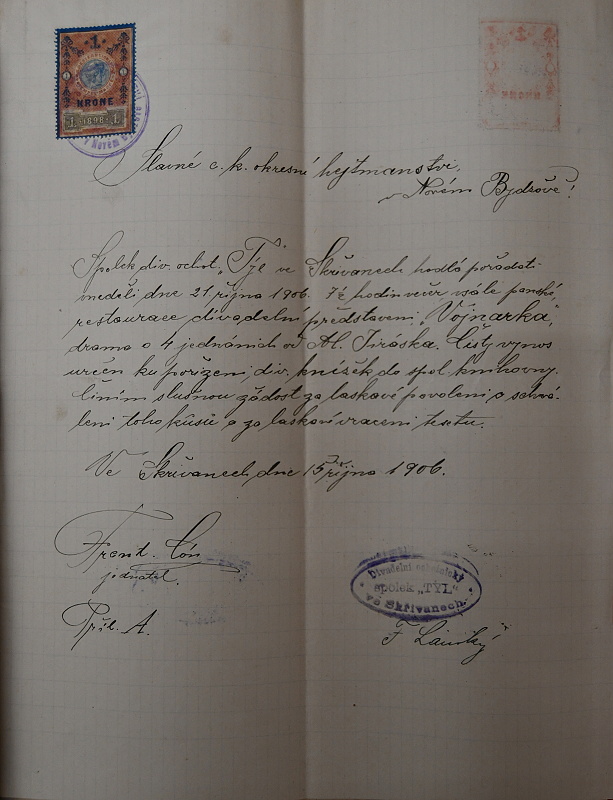 1
KRONE
1 1898 1
v Novém
KRONE
Slavné c. k. okresní hejtmanství
v Novém Bydžově!
Spolek div. ochot. "Tyl" ve Skřivanech hodlá pořádati
v neděli dne 21 října 1906. 7½ hodin večer v sále panské
restaurace divadelní představení "Vojnarka",
drama o 4 jednáních od Al. Jiráska. Čistý výnos
určen ku pořízení div. knížek do spol. knihovny.
Činím slušnou žádost za laskavé povolení a schvá-
lení toho kusů a za laskavé vracení textu.
Ve Skřivanech, dne 15 října 1906.
Frant.
jednatel.
Příl. A.
Divadelní ochotnický
spolek "TYL"
ve Skřivanech.
F.